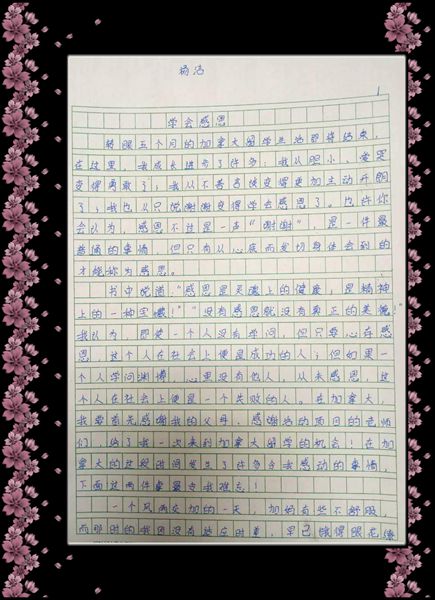 杨洁
1
学会感恩
转眼五个月的加拿大留学生活即将结束,
在这里,我成长进步了许多:我从胆小、
变得勇敢了;我从不善言谈变得更加主动开朗
了;我也从只说谢谢变得学会感恩了。也许你
会认为,感恩不过是一声“谢谢”,是一件最
普通的事情,但只有从心底而发切身体会到的
才能称为感恩。
书中说道“感恩是灵魂上的健康,是精神
上的一种宝藏!”“没有感恩就没有真正的美德!”
我认为,即使一个人没有学问,但只要心存感
恩,这个人在社会上便是成功的人;但如果一
个人学问渊博,心里没有他人,从未感恩,这
个人在社会上便是一个失败的人。在加拿大,
我要首先感谢我的父母,感谢活动项目的老师
们,给了我一次来到加拿大留学的机会!在加
拿大的这段时间发生了许多令我感动的事情,
下面这两件事最令我难忘!
一个风雨交加的一天,加妈有些不舒服,
而那时的我因没有适应时差,早已饿得眼花缭